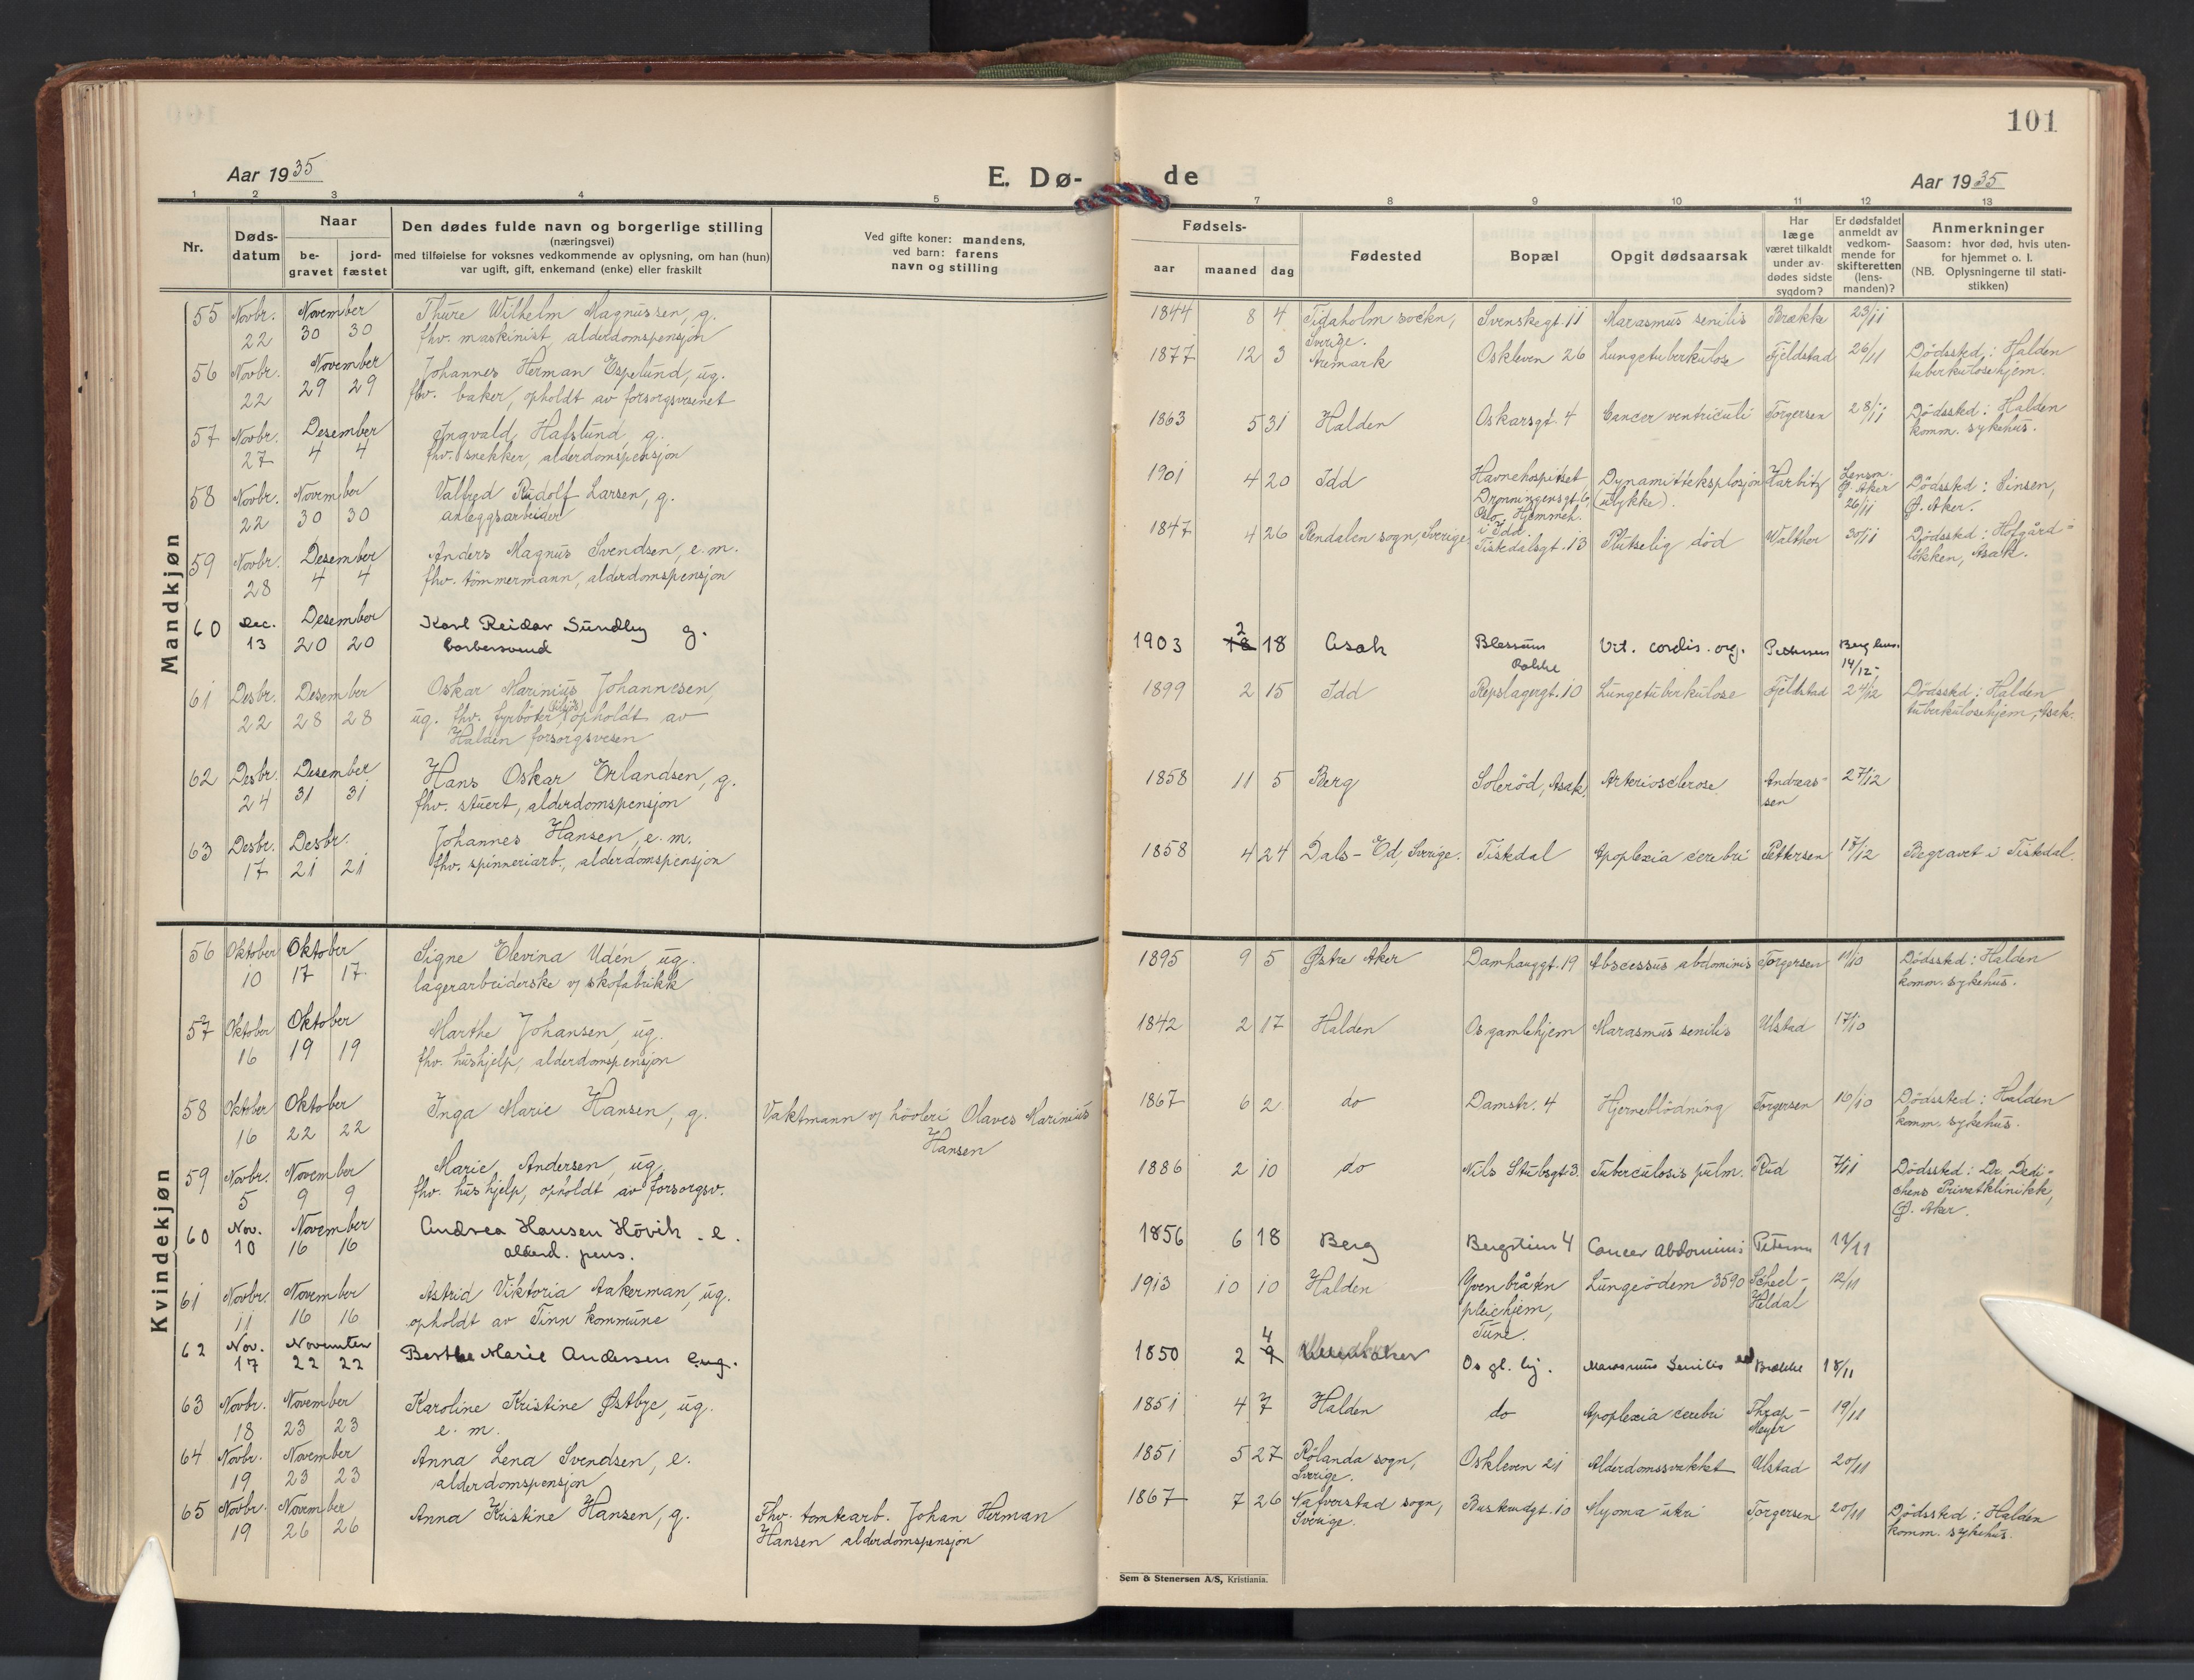 101
Aar 1935
E. Dø-
de
Aar 1935
1 2 3 4 5 7 8 9 10 11 12 13
Nr.
Døds-
datum
Naar
be-
gravet
jord-
fæstet
Den dødes fulde navn og borgerlige stilling
(næringsvei)
med tilføielse for voksnes vedkommende av oplysning, om han (hun)
var ugift, gift, enkemand (enke) eller fraskilt
Ved gifte koner: mandens,
ved barn: farens
navn og stilling
Fødsels-
aar maaned dag
Fødested
Bopæl
Opgit dødsaarsak
Har
læge
været tilkaldt
under av-
dødes sidste
sygdom?
Er dødsfaldet
anmeldt av
vedkom-
mende for
skifteretten
(lens-
manden)?
Anmerkninger
Saasom: hvor død, hvis uten-
for hjemmet o. l.
(NB. Oplysningerne til stati-
stikken)
Mandkjøn
55 Novbr. November Thure Wilhelm Magnussen, g. 1844 8 4 Tidaholm socken, Svenskegt. 11 Marasmus senilis Brække 23/11
22 30 30 fhv. maskinist, alderdomspensjon Sverige.
56 Novbr. November Johannes Herman Espelund, ug. 1877 12 3 Aremark Oskleven 26 Lungetuberkulose Fjeldstad 26/11 Dödssted: Halden
22 29 29 fhv. baker, opholdt av forsorgsvesenet tuberkulosehjem.
57 Novbr. Desember Ingvald Hafslund, g. 1863 5 31 Halden Oskarsgt. 4 Cancer ventriculi Torgersen 28/11 Dödssted: Halden
27 4 4 fhv. snekker, alderdomspensjon komm. sykehus.
58 Novbr. November Valbyd Rudolf Larsen, g. 1901 4 20 Idd Havnehospitset, Dynamitteksplosjon Harbitz Lensm. Dödssted: Sinsen,
22 30 30 anleggsarbeider Dronningensgt. 6, (ulykke). Ø. Aker Ø. Aker.
Oslo. Hjemmeh. 26/11
i Idd.
59 Novbr. Desember Anders Magnus Svendsen, e.m. 1847 4 26 Rendalen sogn, Sverige Tistedalsgt. 13 Plutselig död Walther 30/11 Dödssted: Holgård-
28 4 4 fhv. tömmermann, alderdomspensjon lökken, Asak.
60 Dec. Desember Karl Reidar Sundby g. 1903 2 18 18 Asak Blessum Vit. cordis. org. Pettersen Berg lens.
13 20 20 barbersvend Rokke 14/12
61 Desbr. Desember Oskar Marinius Johannesen, 1899 2 15 Idd Repslagergt. 10 Lungetuberkulose Fjeldstad 24/12 Dödssted: Halden
22 28 28 ug. fhv. fyrböter, opholdt av tuberkulosehjem, Asak.
Halden forsorgsvesen
62 Desbr. Desember Hans Oskar Erlandsen, g. 1858 11 5 Berg Solerød, Asak. Arteriosclerose Andreas- 27/12
24 31 31 fhv. stuert, alderdomspensjon sen
63 Desbr. Desbr. Johannes Hansen, e.m. 1858 4 24 Dals-Ed, Sverige. Tistedal Apoplexia cerebri Pettersen 17/12 Begravet i Tistedal.
17 21 21 fhv. spinneriarb., alderdomspensjon
Kvindekjøn
56 Oktober Oktober Signe Elevina Udén, ug. 1895 9 5 Østre Aker Damhauggt. 19 Abscessus abdominis Torgersen 11/10 Dödssted: Halden
10 17 17 lagerarbeiderske v/ skofabrikk komm. sykehus.
57 Oktober Oktober Marthe Johansen, ug. 1842 2 17 Halden Os gamlehjem Marasmus senilis Ulstad 17/10
16 19 19 fhv. hushjelp, alderdomspensjon
58 Oktober Oktober Inga Marie Hansen, g. Vaktmann v/ hövleri Olaves Marinius 1867 6 2 do Damstr. 4 Hjerneblödning Torgersen 16/10 Dödssted: Halden
16 22 22 Hansen komm. sykehus.
59 Novbr. November Marie Andersen, ug. 1886 2 10 do Nils Stubsgt 3. Tuberculosis pulm. Rud 7/11 Dödssted: Dr. Dedi-
5 9 9 fhv. hushjelp, opholdt av forsorgsv. chens Privatklinikk,
Ø. Aker.
60 Nov. November Andrea Hansen Hövik - e. 1856 6 18 Berg Bergstien 4 Cancer Abdominis 12/11
10 16 16 alderd. pens.
61 Novbr. November Astrid Viktoria Aakerman, ug. 1913 10 10 Halden Yvenbråten Lungeödem 3590 Scheel- 12/11
11 16 16 opholdt av Tinn kommune pleiehjem, Heldal
Tune.
62 Nov. November Berthe Marie Andersen ug. 1850 2 4 9 Os gl. hj. Marasmus Senilis Brække 18/11
17 22 22
63 Novbr. November Karoline Kristine Østbye, ug. 1851 4 7 Halden do Apoplexia cerebri Thrap- 19/11
18 23 23 e. m. Meyer
64 Novbr. November Anna Lena Svendsen, e. 1851 5 27 Rölanda sogn, Oskleven 21 Alderdomssvakhet Ulstad 20/11
19 23 23 alderdomspensjon Sverige.
65 Novbr. November Anna Kristine Hansen, g. Fhv. tomtearb. Johan Herman 1867 7 26 Nafverstad sogn, Buskrudgt. 10 Myoma uteri Torgersen 20/11 Dödssted: Halden
19 26 26 Hansen alderdomspensjon Sverige. komm. sykehus.
Sem & Stenersen A/S, Kristiania.